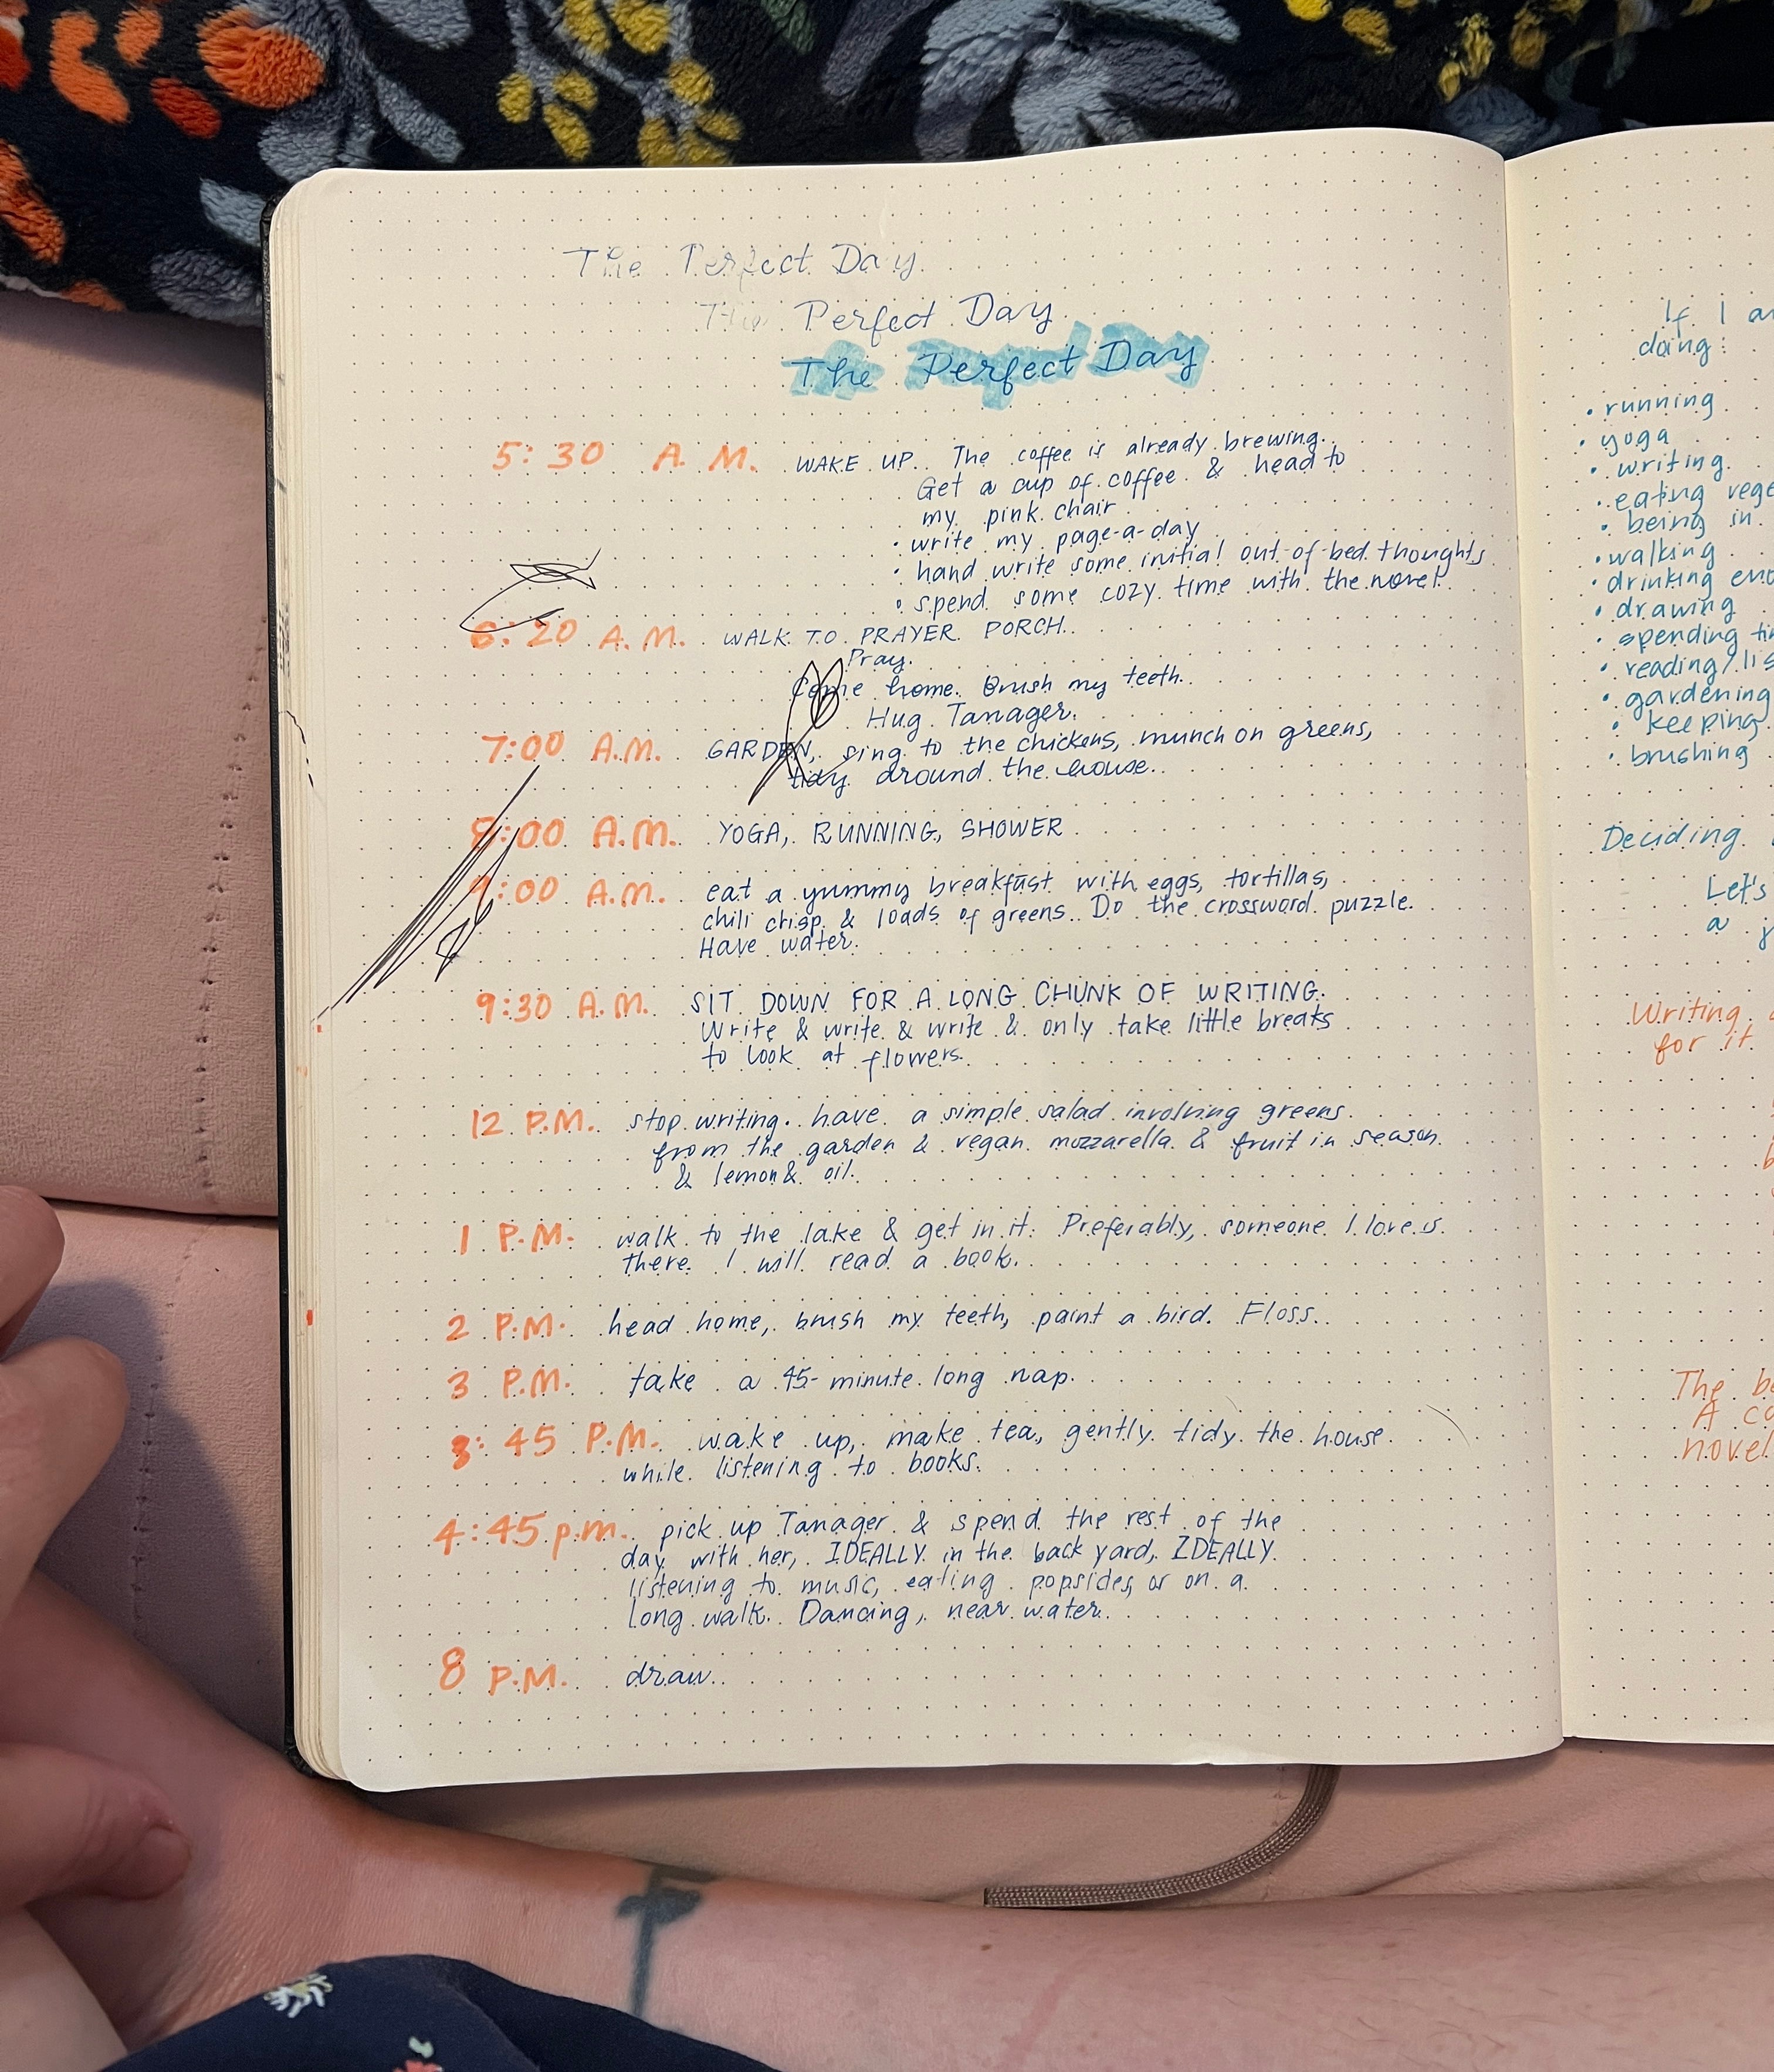 The Perfect Day
The Perfect Day
The Perfect Day
5:30 A.M. WAKE UP. The coffee is already brewing.
Get a cup of coffee & head to
my pink chair
• write my page-a-day
• hand write some initial out-of-bed thoughts
• spend some cozy time with the novel.
6:20 A.M. WALK TO PRAYER PORCH.
Pray.
Come home. Brush my teeth.
Hug Tanager.
7:00 A.M. GARDEN, sing to the chickens, munch on greens,
tidy around the house.
8:00 A.M. YOGA, RUNNING, SHOWER
9:00 A.M. eat a yummy breakfast with eggs, tortillas,
chili crisp & loads of greens. Do the crossword puzzle.
Have water.
9:30 A.M. SIT DOWN FOR A LONG CHUNK OF WRITING.
Write & write & write & only take little breaks
to look at flowers.
12 P.M. stop writing. have a simple salad involving greens
from the garden & vegan mozzarella & fruit in season
& lemon & oil.
1 P.M. walk to the lake & get in it. Preferably, someone I love is
there. I will read a book.
2 P.M. head home, brush my teeth, paint a bird. Floss.
3 P.M. take a 45-minute long nap.
3:45 P.M. wake up, make tea, gently tidy the house
while listening to books.
4:45 p.m. pick up Tanager & spend the rest of the
day with her, IDEALLY in the back yard, IDEALLY
listening to music, eating popsicles, or on a
long walk. Dancing, near water.
8 P.M. draw.
If I
doing:
• running
• yoga
• writing
• eating
• being in
• walking
• drinking
• drawing
• spending
• reading/
• gardening
• keeping
• brushing
Deciding
Let's
a
Writing
for it
The
A
novel